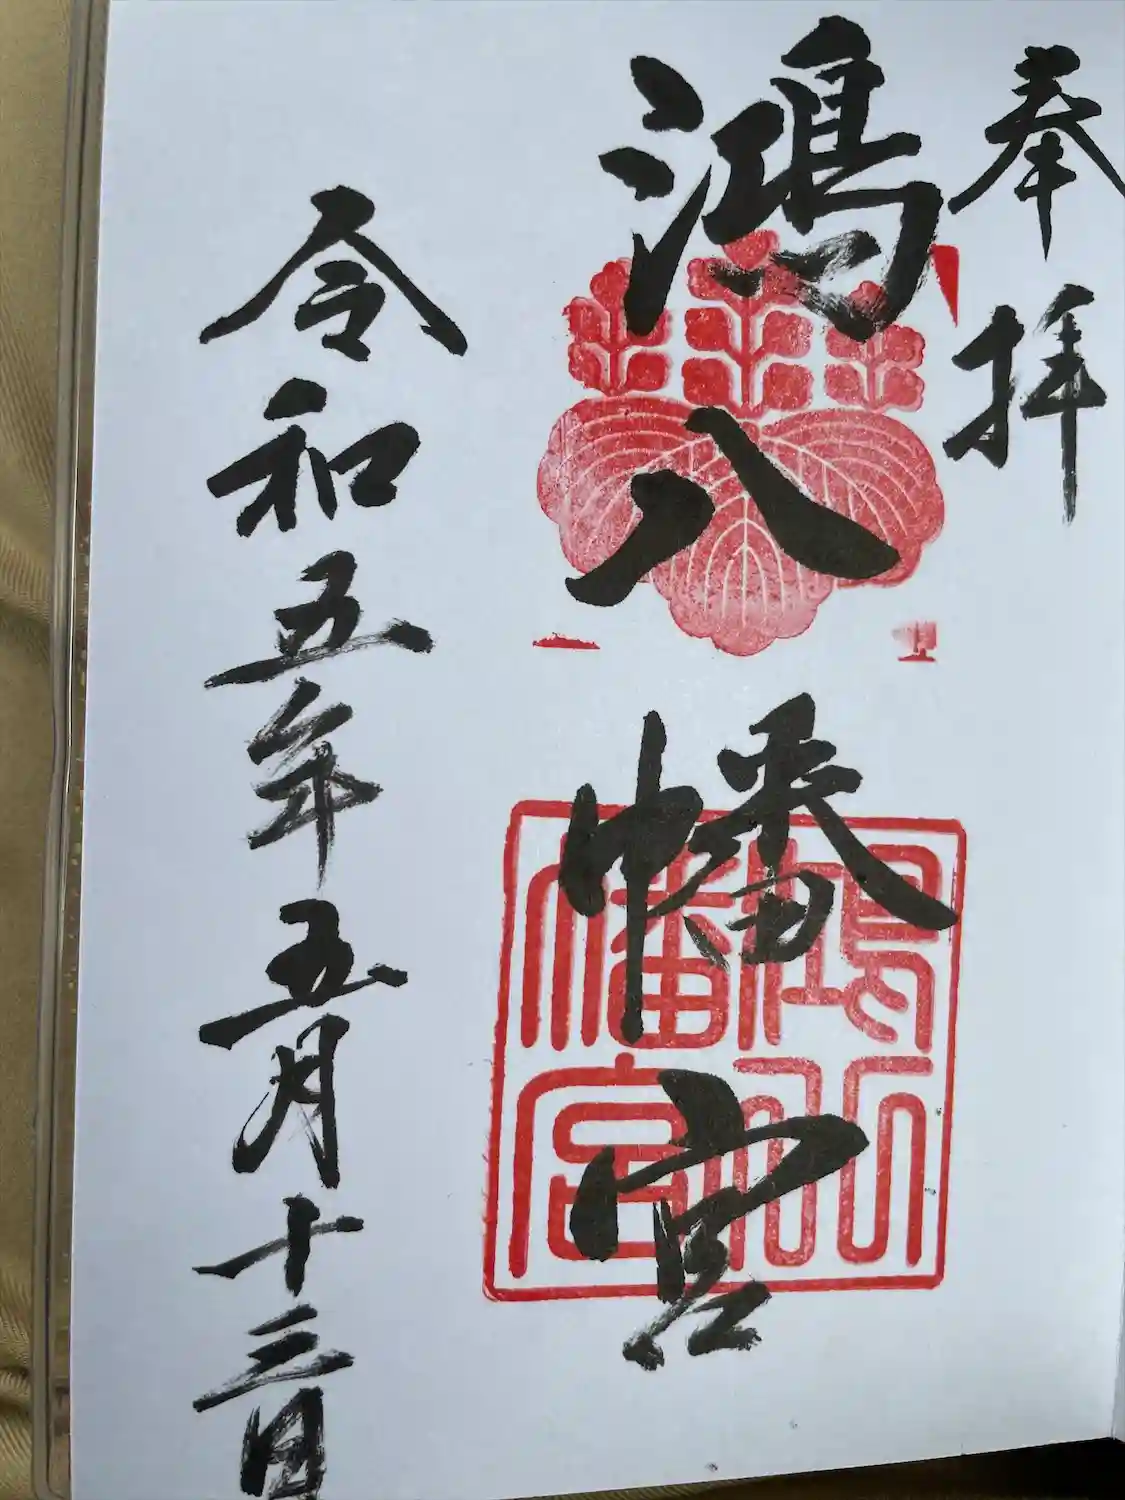 奉拝
鴻八幡宮
鴻八幡宮
令和五年五月十三日